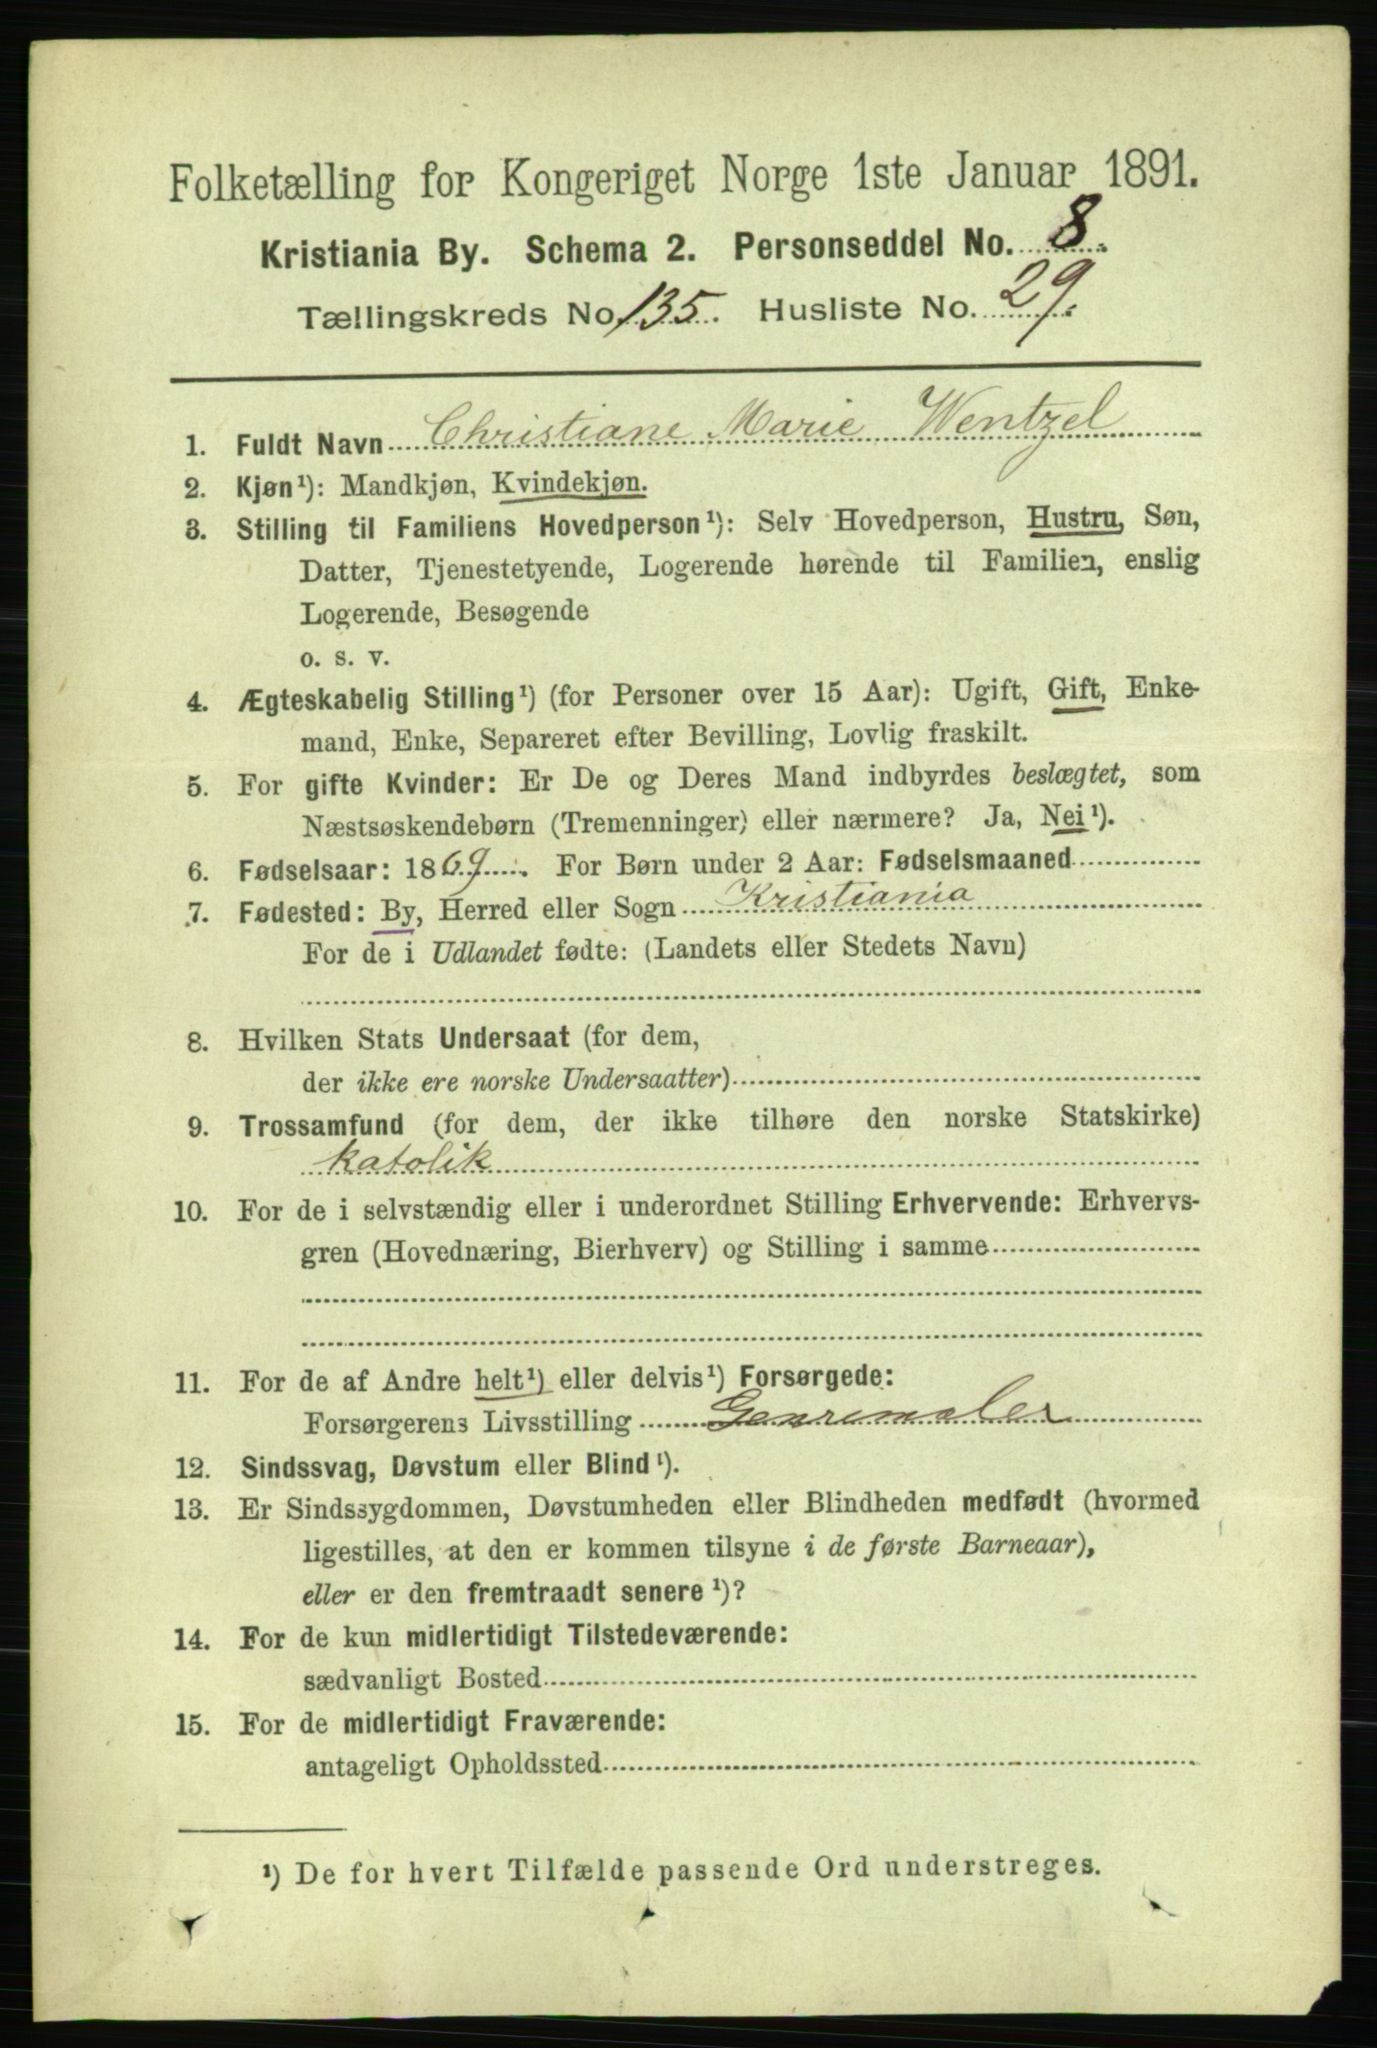 Folketælling for Kongeriget Norge 1ste Januar 1891.
Kristiania By. Schema 2. Personseddel No. 8.
Tællingskreds No. 135. Husliste No. 29.
1. Fuldt Navn Christiane Marie Wentzel
2. Kjøn¹): Mandkjøn, Kvindekjøn.
3. Stilling til Familiens Hovedperson¹): Selv Hovedperson, Hustru, Søn,
Datter, Tjenestetyende, Logerende hørende til Familien, enslig
Logerende, Besøgende
o. s. v.
4. Ægteskabelig Stilling¹) (for Personer over 15 Aar): Ugift, Gift, Enke-
mand, Enke, Separeret efter Bevilling, Lovlig fraskilt.
5. For gifte Kvinder: Er De og Deres Mand indbyrdes beslægtet, som
Næstsøskendebørn (Tremenninger) eller nærmere? Ja, Nei¹).
6. Fødselsaar: 1869. For Børn under 2 Aar: Fødselsmaaned
7. Fødested: By, Herred eller Sogn Kristiania
For de i Udlandet fødte: (Landets eller Stedets Navn)
8. Hvilken Stats Undersaat (for dem,
der ikke ere norske Undersaatter)
9. Trossamfund (for dem, der ikke tilhøre den norske Statskirke)
katolik
10. For de i selvstændig eller i underordnet Stilling Erhvervende: Erhvervs-
gren (Hovednæring, Bierhverv) og Stilling i samme
11. For de af Andre helt¹) eller delvis¹) Forsørgede:
Forsørgerens Livsstilling Genremaler
12. Sindssvag, Døvstum eller Blind¹).
13. Er Sindssygdommen, Døvstumheden eller Blindheden medfødt (hvormed
ligestilles, at den er kommen tilsyne i de første Barneaar),
eller er den fremtraadt senere¹)?
14. For de kun midlertidigt Tilstedeværende:
sædvanligt Bosted
15. For de midlertidigt Fraværende:
antageligt Opholdssted
¹) De for hvert Tilfælde passende Ord understreges.